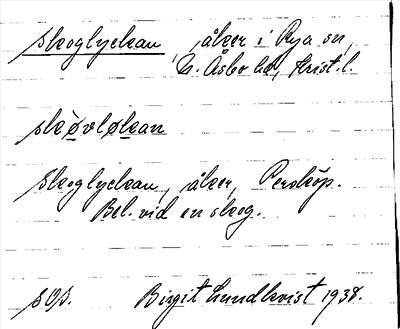 Skoglyckan, åker i Rya sn,
N. Åsbo hd, Krist. l.
skòvløkan
Skoglyckan, åker, Perstorp.
Bel. vid en skog.
Birgit Lundkvist 1938.